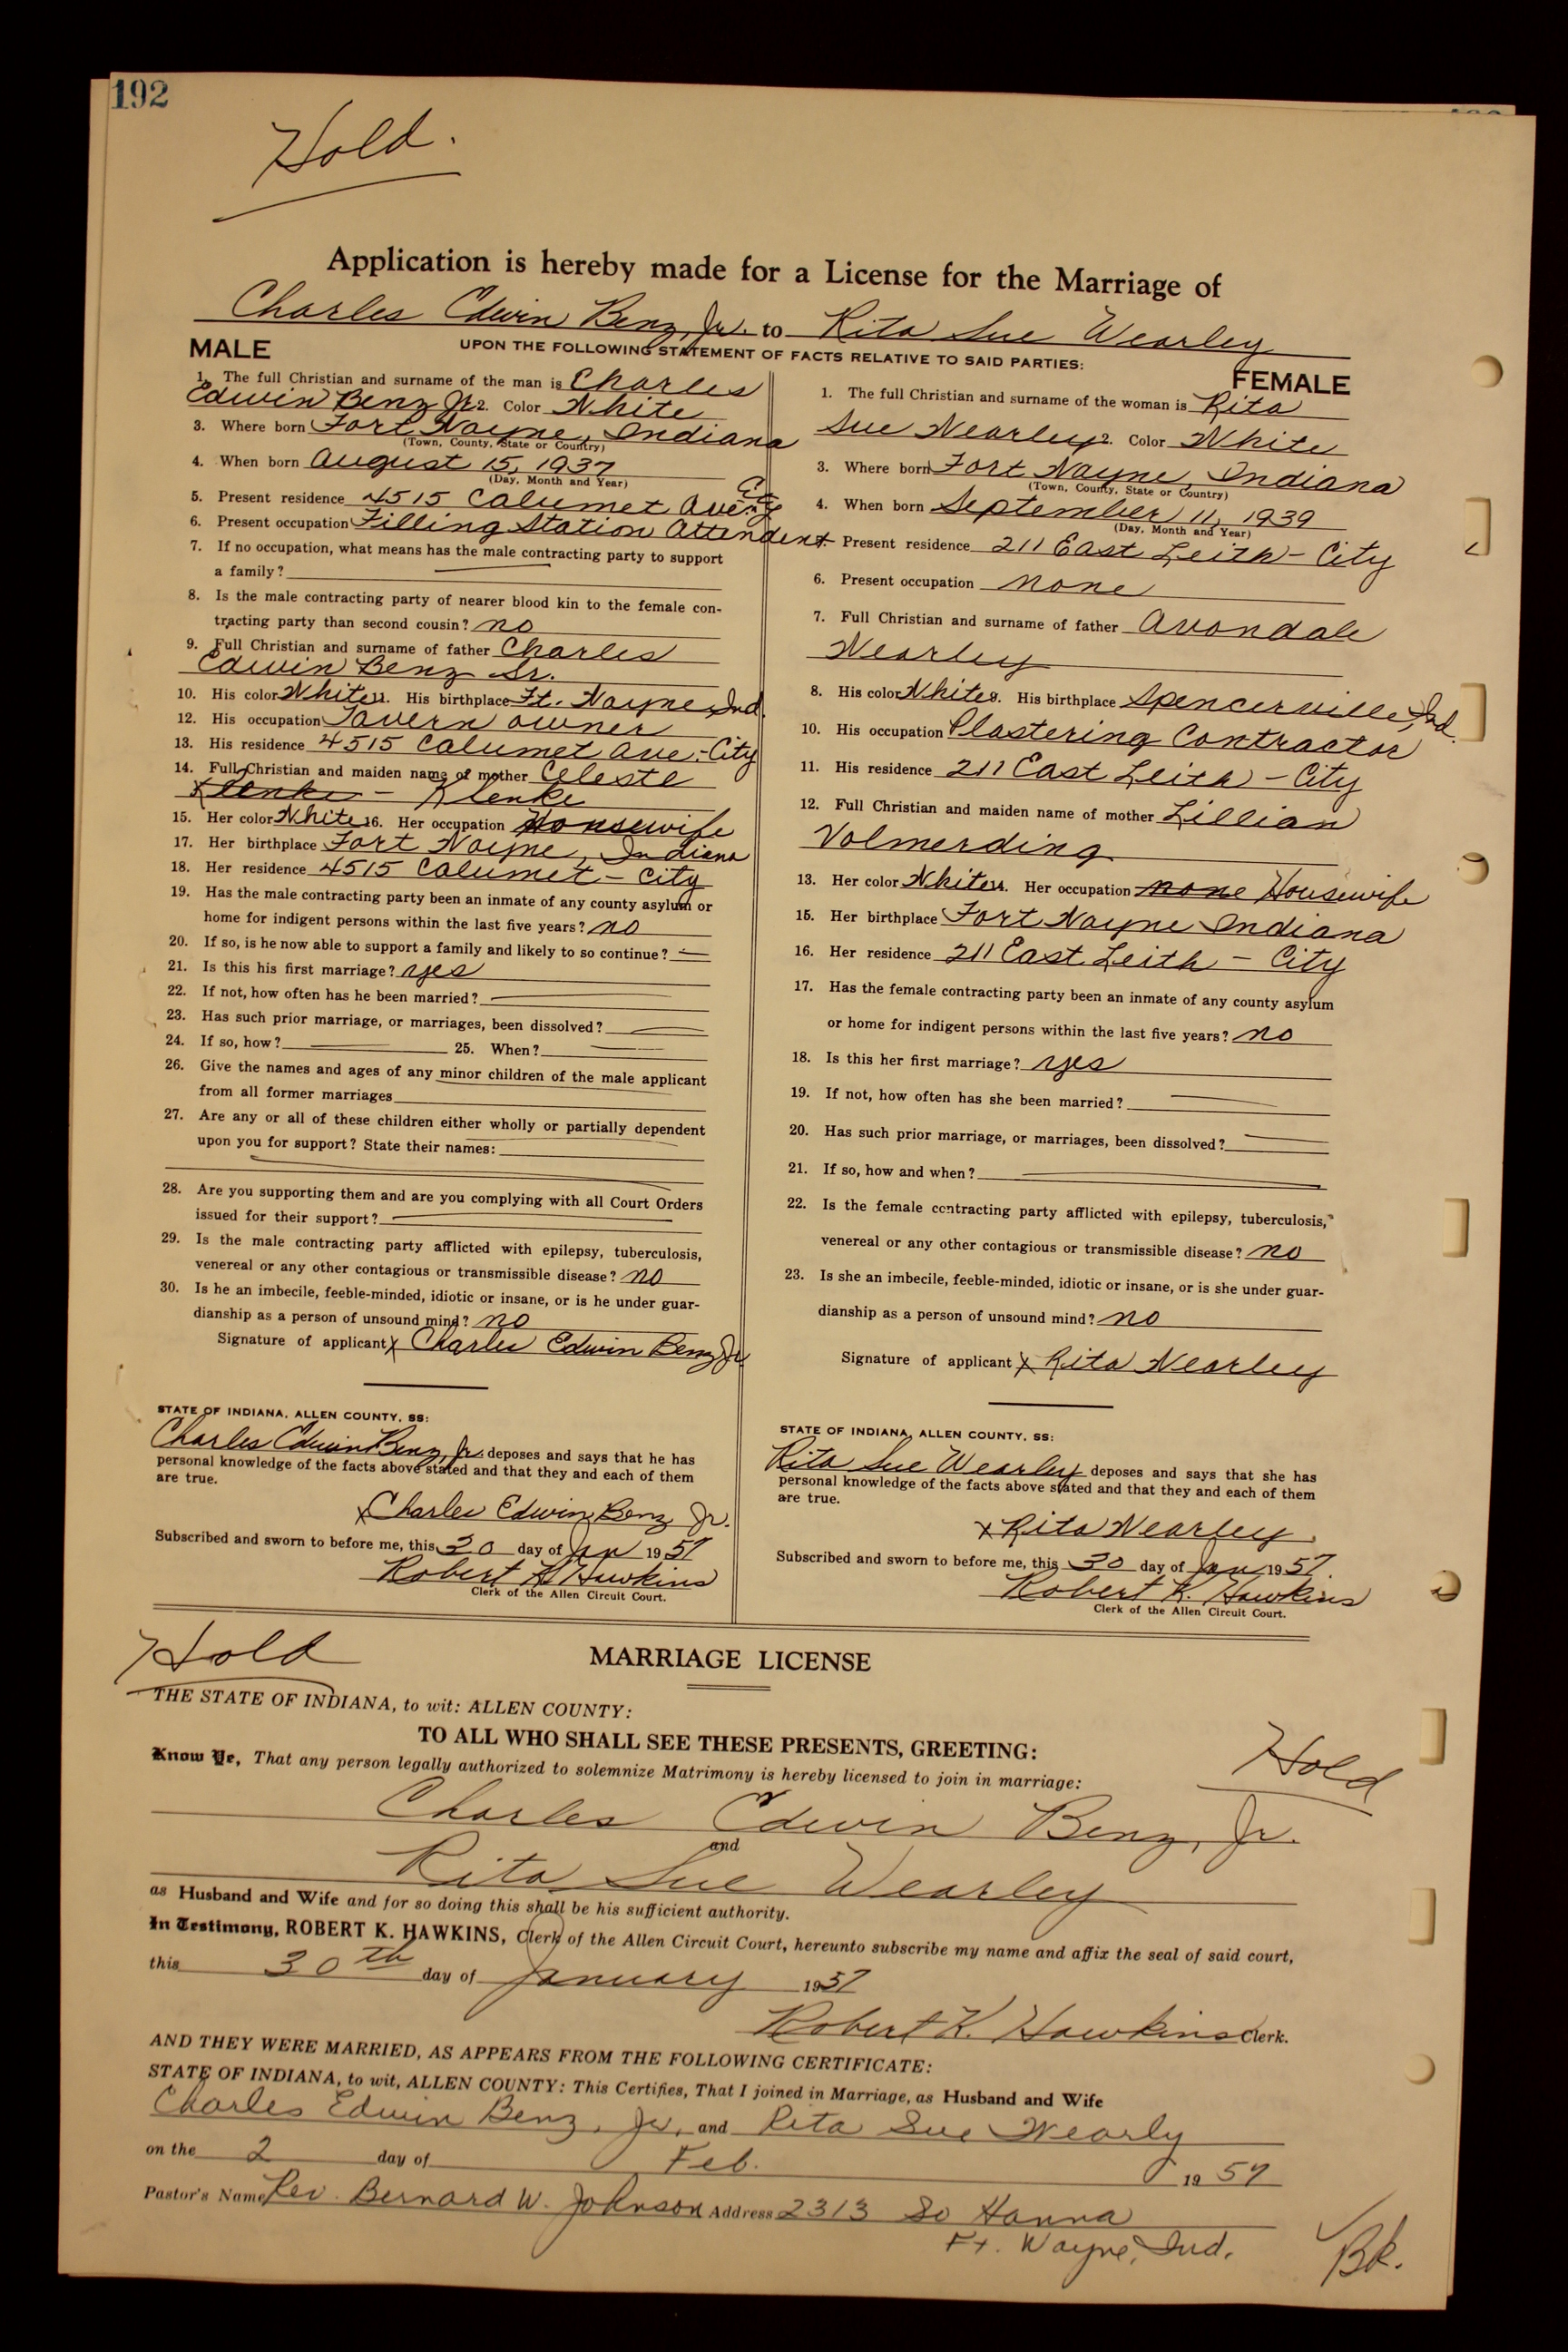 192
Hold.
Application is hereby made for a License for the Marriage of
Charles Edwin Benz, Jr. to Rita Sue Wearley
UPON THE FOLLOWING STATEMENT OF FACTS RELATIVE TO SAID PARTIES:
MALE
1. The full Christian and surname of the man is Charles
Edwin Benz Jr. 2. Color White
3. Where born Fort Wayne, Indiana
(Town, County, State or Country)
4. When born August 15, 1937
(Day, Month and Year)
5. Present residence 4515 Calumet Ave. City
6. Present occupation Filling Station Attendent
7. If no occupation, what means has the male contracting party to support
a family?
8. Is the male contracting party of nearer blood kin to the female con-
tracting party than second cousin? no
9. Full Christian and surname of father Charles
Edwin Benz Sr.
10. His color White 11. His birthplace Ft. Wayne, Ind.
12. His occupation Tavern owner
13. His residence 4515 Calumet Ave.-City
14. Full Christian and maiden name of mother Celeste
Klenke - Klenke
15. Her color White 16. Her occupation Housewife
17. Her birthplace Fort Wayne, Indiana
18. Her residence 4515 Calumet - City
19. Has the male contracting party been an inmate of any county asylum or
home for indigent persons within the last five years? no
20. If so, is he now able to support a family and likely to so continue?
21. Is this his first marriage? yes
22. If not, how often has he been married?
23. Has such prior marriage, or marriages, been dissolved?
24. If so, how? 25. When?
26. Give the names and ages of any minor children of the male applicant
from all former marriages
27. Are any or all of these children either wholly or partially dependent
upon you for support? State their names:
28. Are you supporting them and are you complying with all Court Orders
issued for their support?
29. Is the male contracting party afflicted with epilepsy, tuberculosis,
venereal or any other contagious or transmissible disease? no
30. Is he an imbecile, feeble-minded, idiotic or insane, or is he under guar-
dianship as a person of unsound mind? no
Signature of applicant x Charles Edwin Benz Jr.
STATE OF INDIANA, ALLEN COUNTY, SS:
Charles Edwin Benz, Jr. deposes and says that he has
personal knowledge of the facts above stated and that they and each of them
are true.
x Charles Edwin Benz Jr.
Subscribed and sworn to before me, this 30 day of Jan 1957
Robert K Hawkins
Clerk of the Allen Circuit Court.
FEMALE
1. The full Christian and surname of the woman is Rita
Sue Wearley 2. Color White
3. Where born Fort Wayne, Indiana
(Town, County, State or Country)
4. When born September 11, 1939
(Day, Month and Year)
Present residence 211 East Leith - City
6. Present occupation none
7. Full Christian and surname of father Avondale
Wearley
8. His color White 9. His birthplace Spencerville, Ind.
10. His occupation Plastering Contractor
11. His residence 211 East Leith - City
12. Full Christian and maiden name of mother Lillian
Volmerding
13. Her color White 14. Her occupation none Housewife
15. Her birthplace Fort Wayne Indiana
16. Her residence 211 East Leith - City
17. Has the female contracting party been an inmate of any county asylum
or home for indigent persons within the last five years? no
18. Is this her first marriage? yes
19. If not, how often has she been married?
20. Has such prior marriage, or marriages, been dissolved?
21. If so, how and when?
22. Is the female contracting party afflicted with epilepsy, tuberculosis,
venereal or any other contagious or transmissible disease? no
23. Is she an imbecile, feeble-minded, idiotic or insane, or is she under guar-
dianship as a person of unsound mind? no
Signature of applicant x Rita Wearley
STATE OF INDIANA, ALLEN COUNTY, SS:
Rita Sue Wearley deposes and says that she has
personal knowledge of the facts above stated and that they and each of them
are true.
x Rita Wearley
Subscribed and sworn to before me, this 30 day of Jan 1957.
Robert K. Hawkins
Clerk of the Allen Circuit Court.
Hold
MARRIAGE LICENSE
THE STATE OF INDIANA, to wit: ALLEN COUNTY:
TO ALL WHO SHALL SEE THESE PRESENTS, GREETING:
Know Ye, That any person legally authorized to solemnize Matrimony is hereby licensed to join in marriage:
Hold
Charles Edwin Benz, Jr.
and
Rita Sue Wearley
as Husband and Wife and for so doing this shall be his sufficient authority.
In Testimony, ROBERT K. HAWKINS, Clerk of the Allen Circuit Court, hereunto subscribe my name and affix the seal of said court,
this 30th day of January 1957
Robert K. Hawkins Clerk.
AND THEY WERE MARRIED, AS APPEARS FROM THE FOLLOWING CERTIFICATE:
STATE OF INDIANA, to wit, ALLEN COUNTY: This Certifies, That I joined in Marriage, as Husband and Wife
Charles Edwin Benz, Jr. and Rita Sue Wearly
on the 2 day of Feb. 1957
Pastor's Name Rev. Bernard W. Johnson Address 2313 So Hanna
Ft. Wayne, Ind.
Bk.